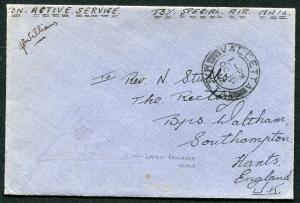 ON ACTIVE SERVICE BY SPECIAL AIR MAIL
JWilliams
VALLETTA
To Rev. N. Stubbs
The Rectory
Bps Waltham,
Southampton,
Hants,
England
U.K.